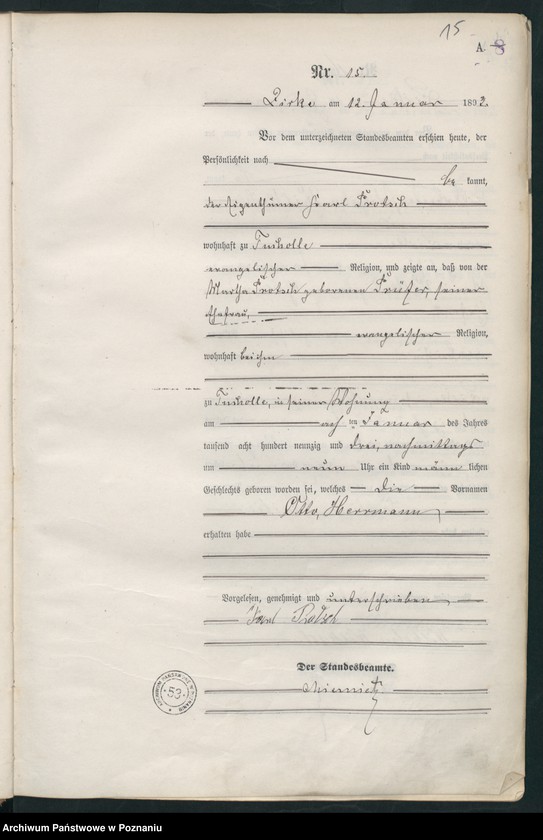 15
A. 8
Nr. 15.
Zirke am 12. Januar 1893.
Vor dem unterzeichneten Standesbeamten erschien heute, der
Persönlichkeit nach
be kannt,
der Eigenthümer Karl Protsch
wohnhaft zu Tucholle
evangelischer Religion, und zeigte an, daß von der
Martha Protsch geborenen Prüfer, seiner
Ehefrau,
evangelischer Religion,
wohnhaft bei ihm
zu Tucholle, in seiner Wohnung
am ach ten Januar des Jahres
tausend acht hundert neunzig und drei, nachmittags
um neun Uhr ein Kind männ lichen
Geschlechts geboren worden sei, welches die Vornamen
Otto, Herrmann
erhalten habe.
Vorgelesen, genehmigt und unterschrieben
Karl Protsch
Der Standesbeamte.
ARCHIWUM PAŃSTWOWE W POZNANIU
53
Archiwum Państwowe w Poznaniu